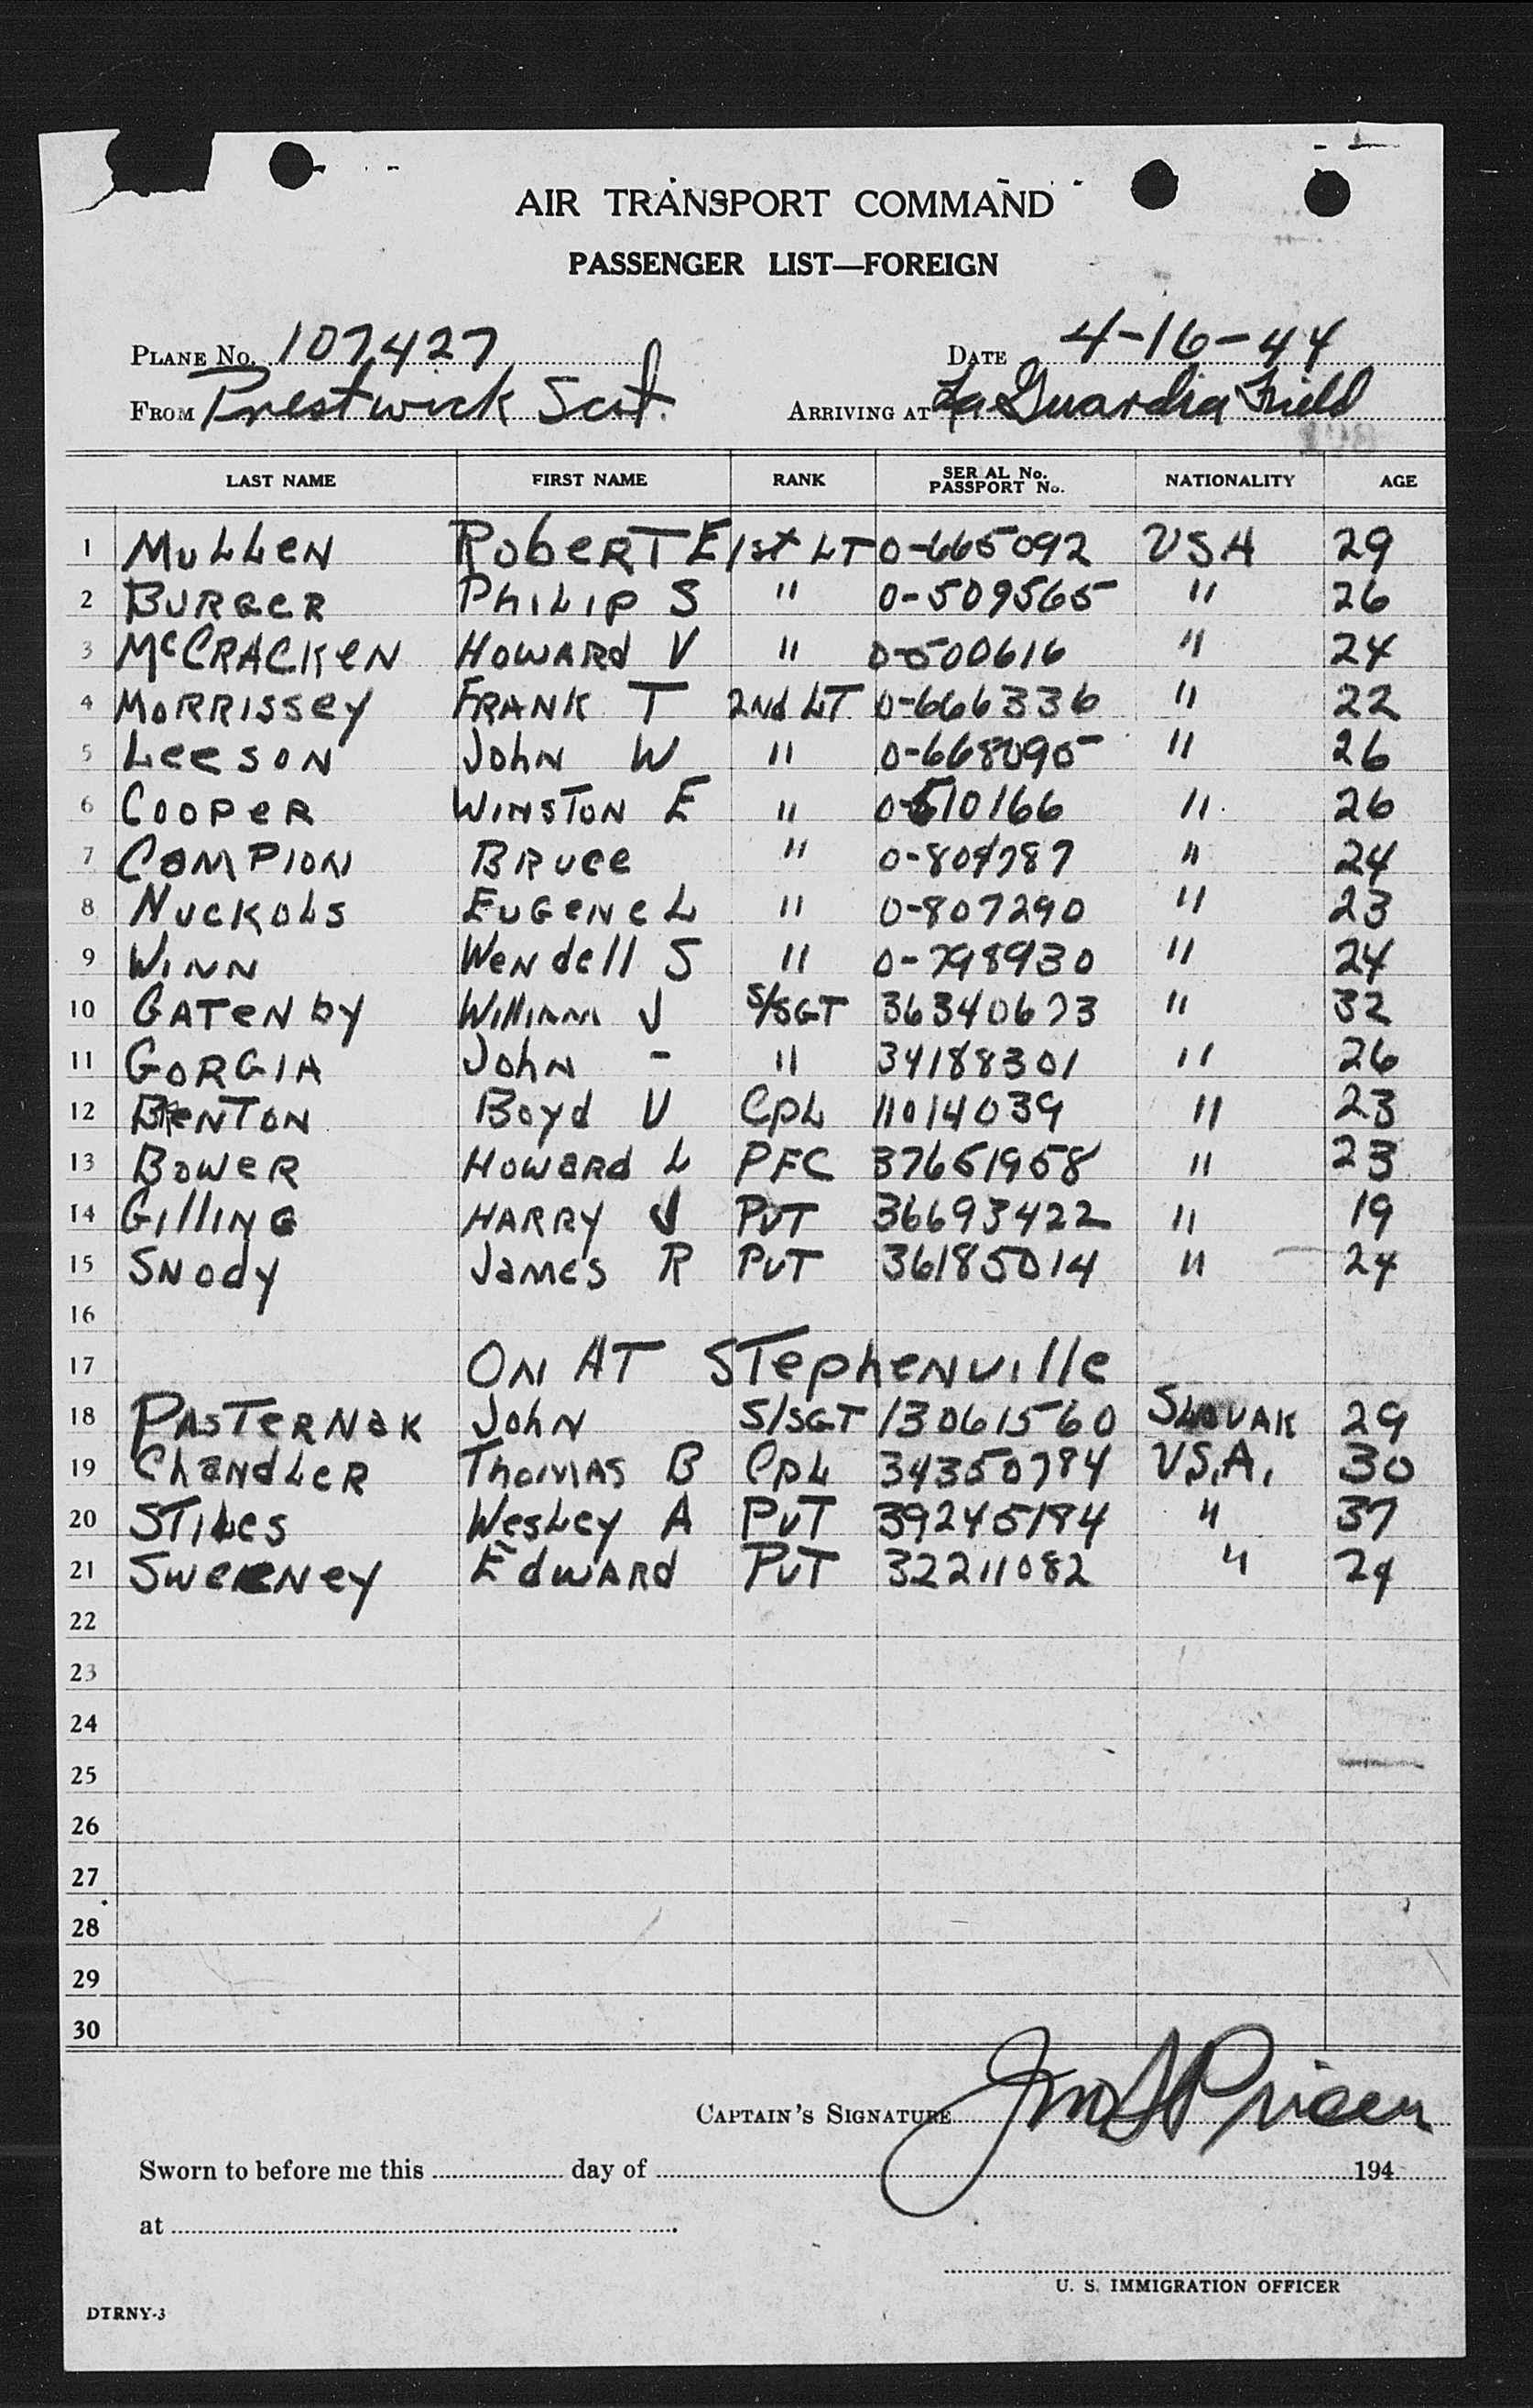 AIR TRANSPORT COMMAND
PASSENGER LIST—FOREIGN
PLANE NO. 107427 DATE 4-16-44
FROM Prestwick Scot. ARRIVING AT La Guardia Field
LAST NAME FIRST NAME RANK SERIAL No. PASSPORT No. NATIONALITY AGE
1 MULLEN ROBERT E 1st LT 0-665092 USA 29
2 BURGER PHILIP S " 0-509565 " 26
3 McCRACKEN HOWARD V " 0-500616 " 24
4 MORRISSEY FRANK T 2Nd LT. 0-666336 " 22
5 LEESON JOHN W " 0-668095 " 26
6 COOPER WINSTON E " 0-510166 " 26
7 COMPION BRUCE " 0-804787 " 24
8 NUCKOLS EUGENE L " 0-807290 " 23
9 WINN WENDELL S " 0-798930 " 24
10 GATENBY WILLIAM J S/SGT 36340673 " 32
11 GORGIA JOHN - " 34188301 " 26
12 BENTON BOYD V CPL 11014039 " 23
13 BOWER HOWARD L PFC 37651958 " 23
14 GILLING HARRY J PVT 36693422 " 19
15 SNODY JAMES R PVT 36185014 " 24
16
17 ON AT STEPHENVILLE
18 PASTERNAK JOHN S/SGT 13061560 SLOVAK 29
19 CHANDLER THOMAS B CPL 34350784 U.S.A. 30
20 STILES WESLEY A PVT 39245184 " 37
21 SWEENEY EDWARD PVT 32211082 " 24
22
23
24
25
26
27
28
29
30
CAPTAIN'S SIGNATURE
Sworn to before me this day of 194
at
U. S. IMMIGRATION OFFICER
DTRNY-3